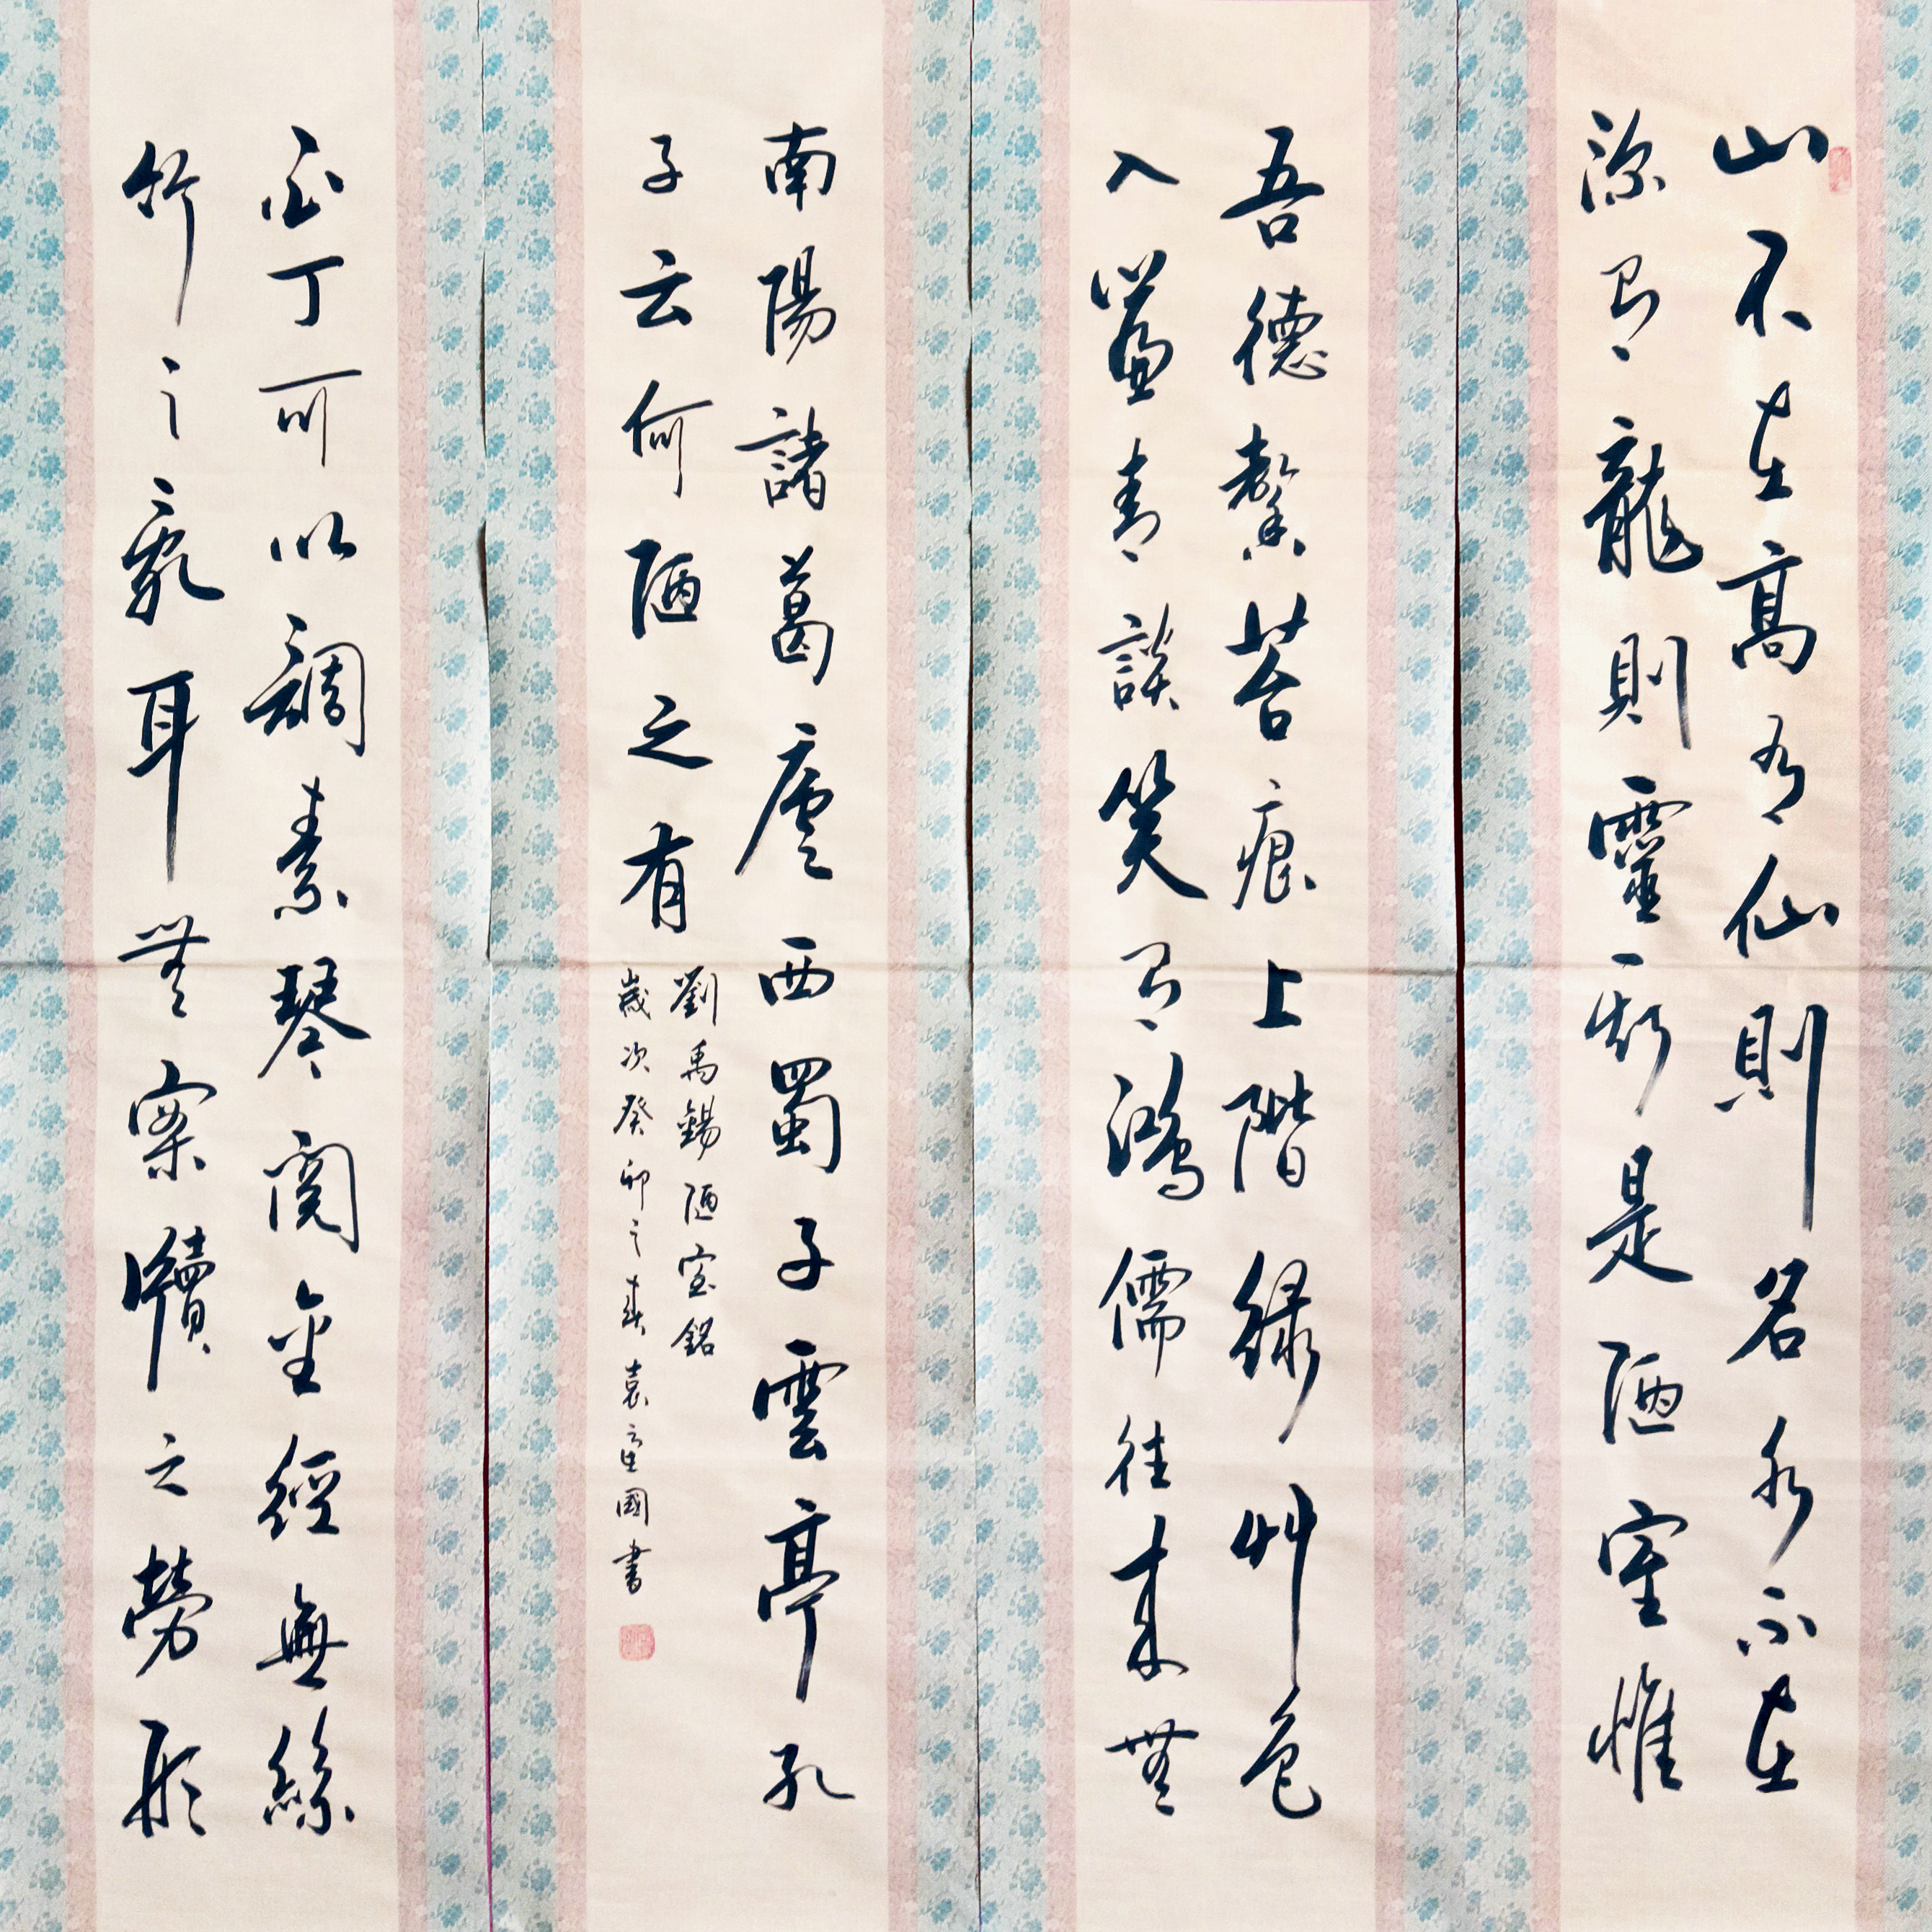 山不在高有仙則名水不在
深有龍則靈斯是陋室惟
吾德馨苔痕上階緑艸色
入簾青談笑有鴻儒往来無
白丁可以調素琴閱金經無絲
竹之亂耳無案牘之勞形
南陽諸葛廬西蜀子雲亭孔
子云何陋之有
劉禹錫陋室銘
歲次癸卯之春袁國書